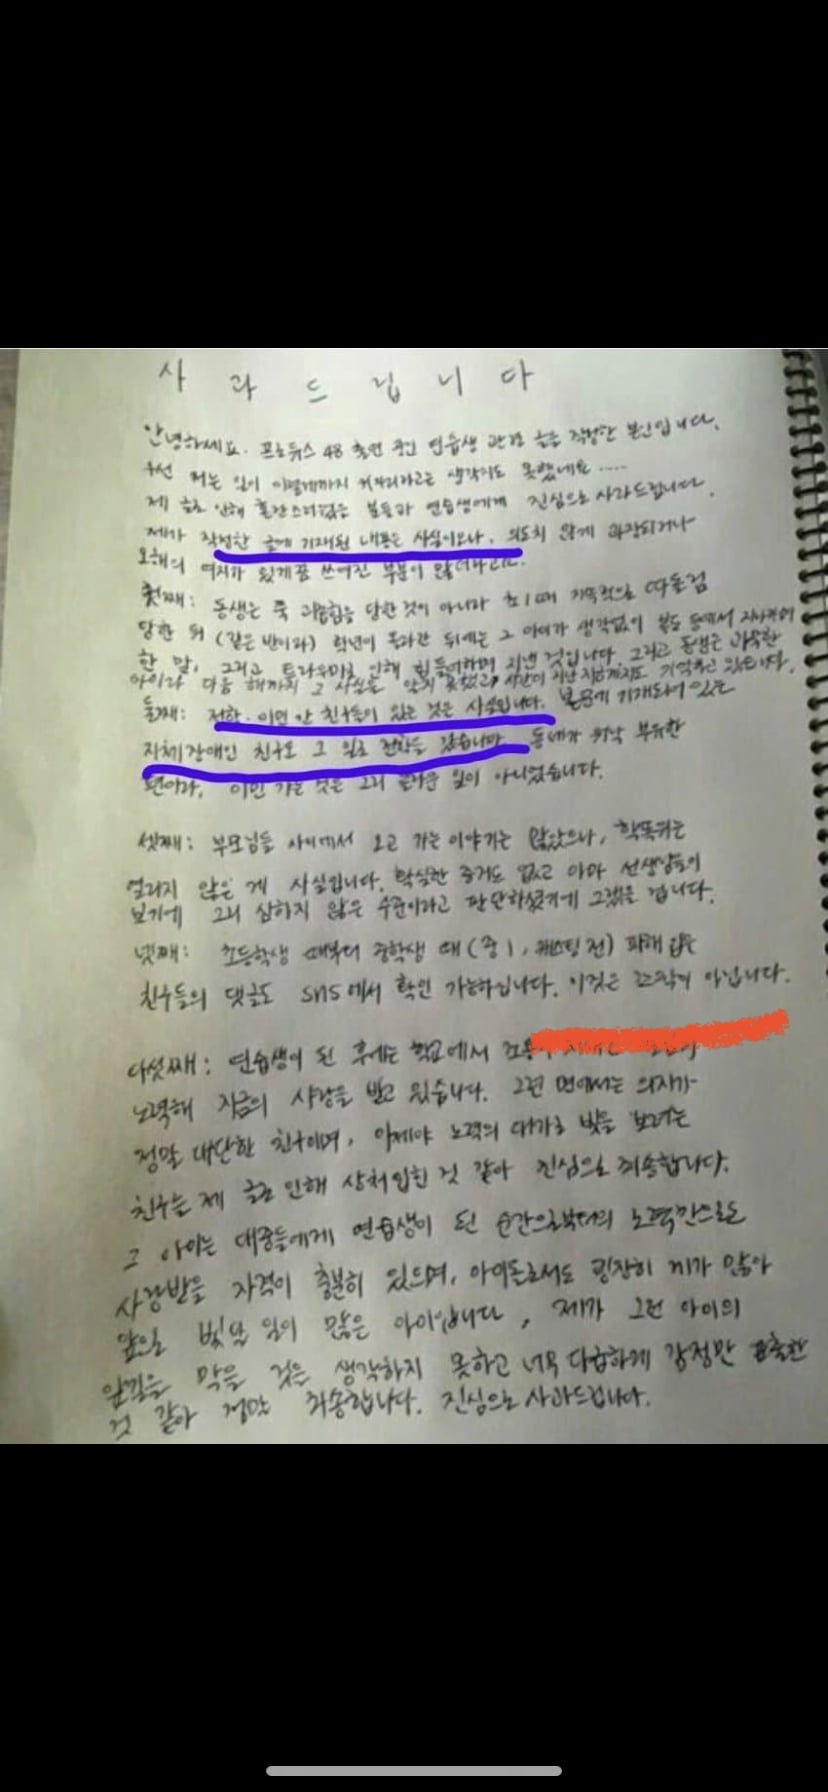 사과드립니다
안녕하세요. 프로듀스 48 출연 중인 연습생 관련 글을 작성한 본인입니다.
우선 저는 일이 이렇게까지 커지리라고는 생각지도 못했네요.....
제 글로 인해 혼란스러웠을 분들과 연습생에게 진심으로 사과드립니다.
제가 작성한 글에 기재된 내용은 사실이오나, 의도치 않게 과장되거나
오해의 여지가 있게끔 쓰여진 부분이
첫째: 동생은 쭉 괴롭힘을 당한 것이 아니라 초1때 지속적으로 따돌림
당한 뒤 (같은 반이라) 학년이 올라간 뒤에는 그 아이가 생각없이 복도 등에서 지나가며
한 말, 그리고 트라우마로 인해 힘들어하며 지낸 것입니다. 그리고 동생은 과묵한
아이라 다음 해까지 그 사실을 알지 못했고, 시간이 지난 지금까지도 기억하고 있습니다.
둘째: 전학·이민 간 친구들이 있는 것은 사실입니다. 본문에 기재되어 있는
지체장애인 친구도 그 일로 전학을 갔습니다. 동네가 워낙 부유한
편이라, 이민 가는 것은 그리 놀라운 일이 아니었습니다.
셋째: 부모님들 사이에서 오고 가는 이야기는 많았으나, 학폭위는
열리지 않은 게 사실입니다. 확실한 증거도 없고 아마 선생님들이
보기에 그리 심하지 않은 수준이라고 판단하셨기에 그랬을 겁니다.
넷째: 초등학생 때부터 중학생 때 (중1, 캐스팅 전) 피해 입은
친구들의 댓글도 SNS에서 확인 가능하십니다. 이것은 조작이 아닙니다.
다섯째: 연습생이 된 후에는 학교에서
노력해 지금의 사랑을 받고 있습니다. 그런 면에서는 의지가
정말 대단한 친구이며, 이제야 노력의 대가로 빛을 보려는
친구는 제 글로 인해 상처 입힌 것 같아 진심으로 죄송합니다.
그 아이는 대중들에게 연습생이 된 순간으로부터의 노력만으로도
사랑받을 자격이 충분히 있으며, 아이돌로서도 굉장히 끼가 많아
앞으로 빛날 일이 많은 아이입니다. 제가 그런 아이의
앞길을 막을 것은 생각하지 못하고 너무 다급하게 감정만 표출한
것 같아 정말 죄송합니다. 진심으로 사과드립니다.